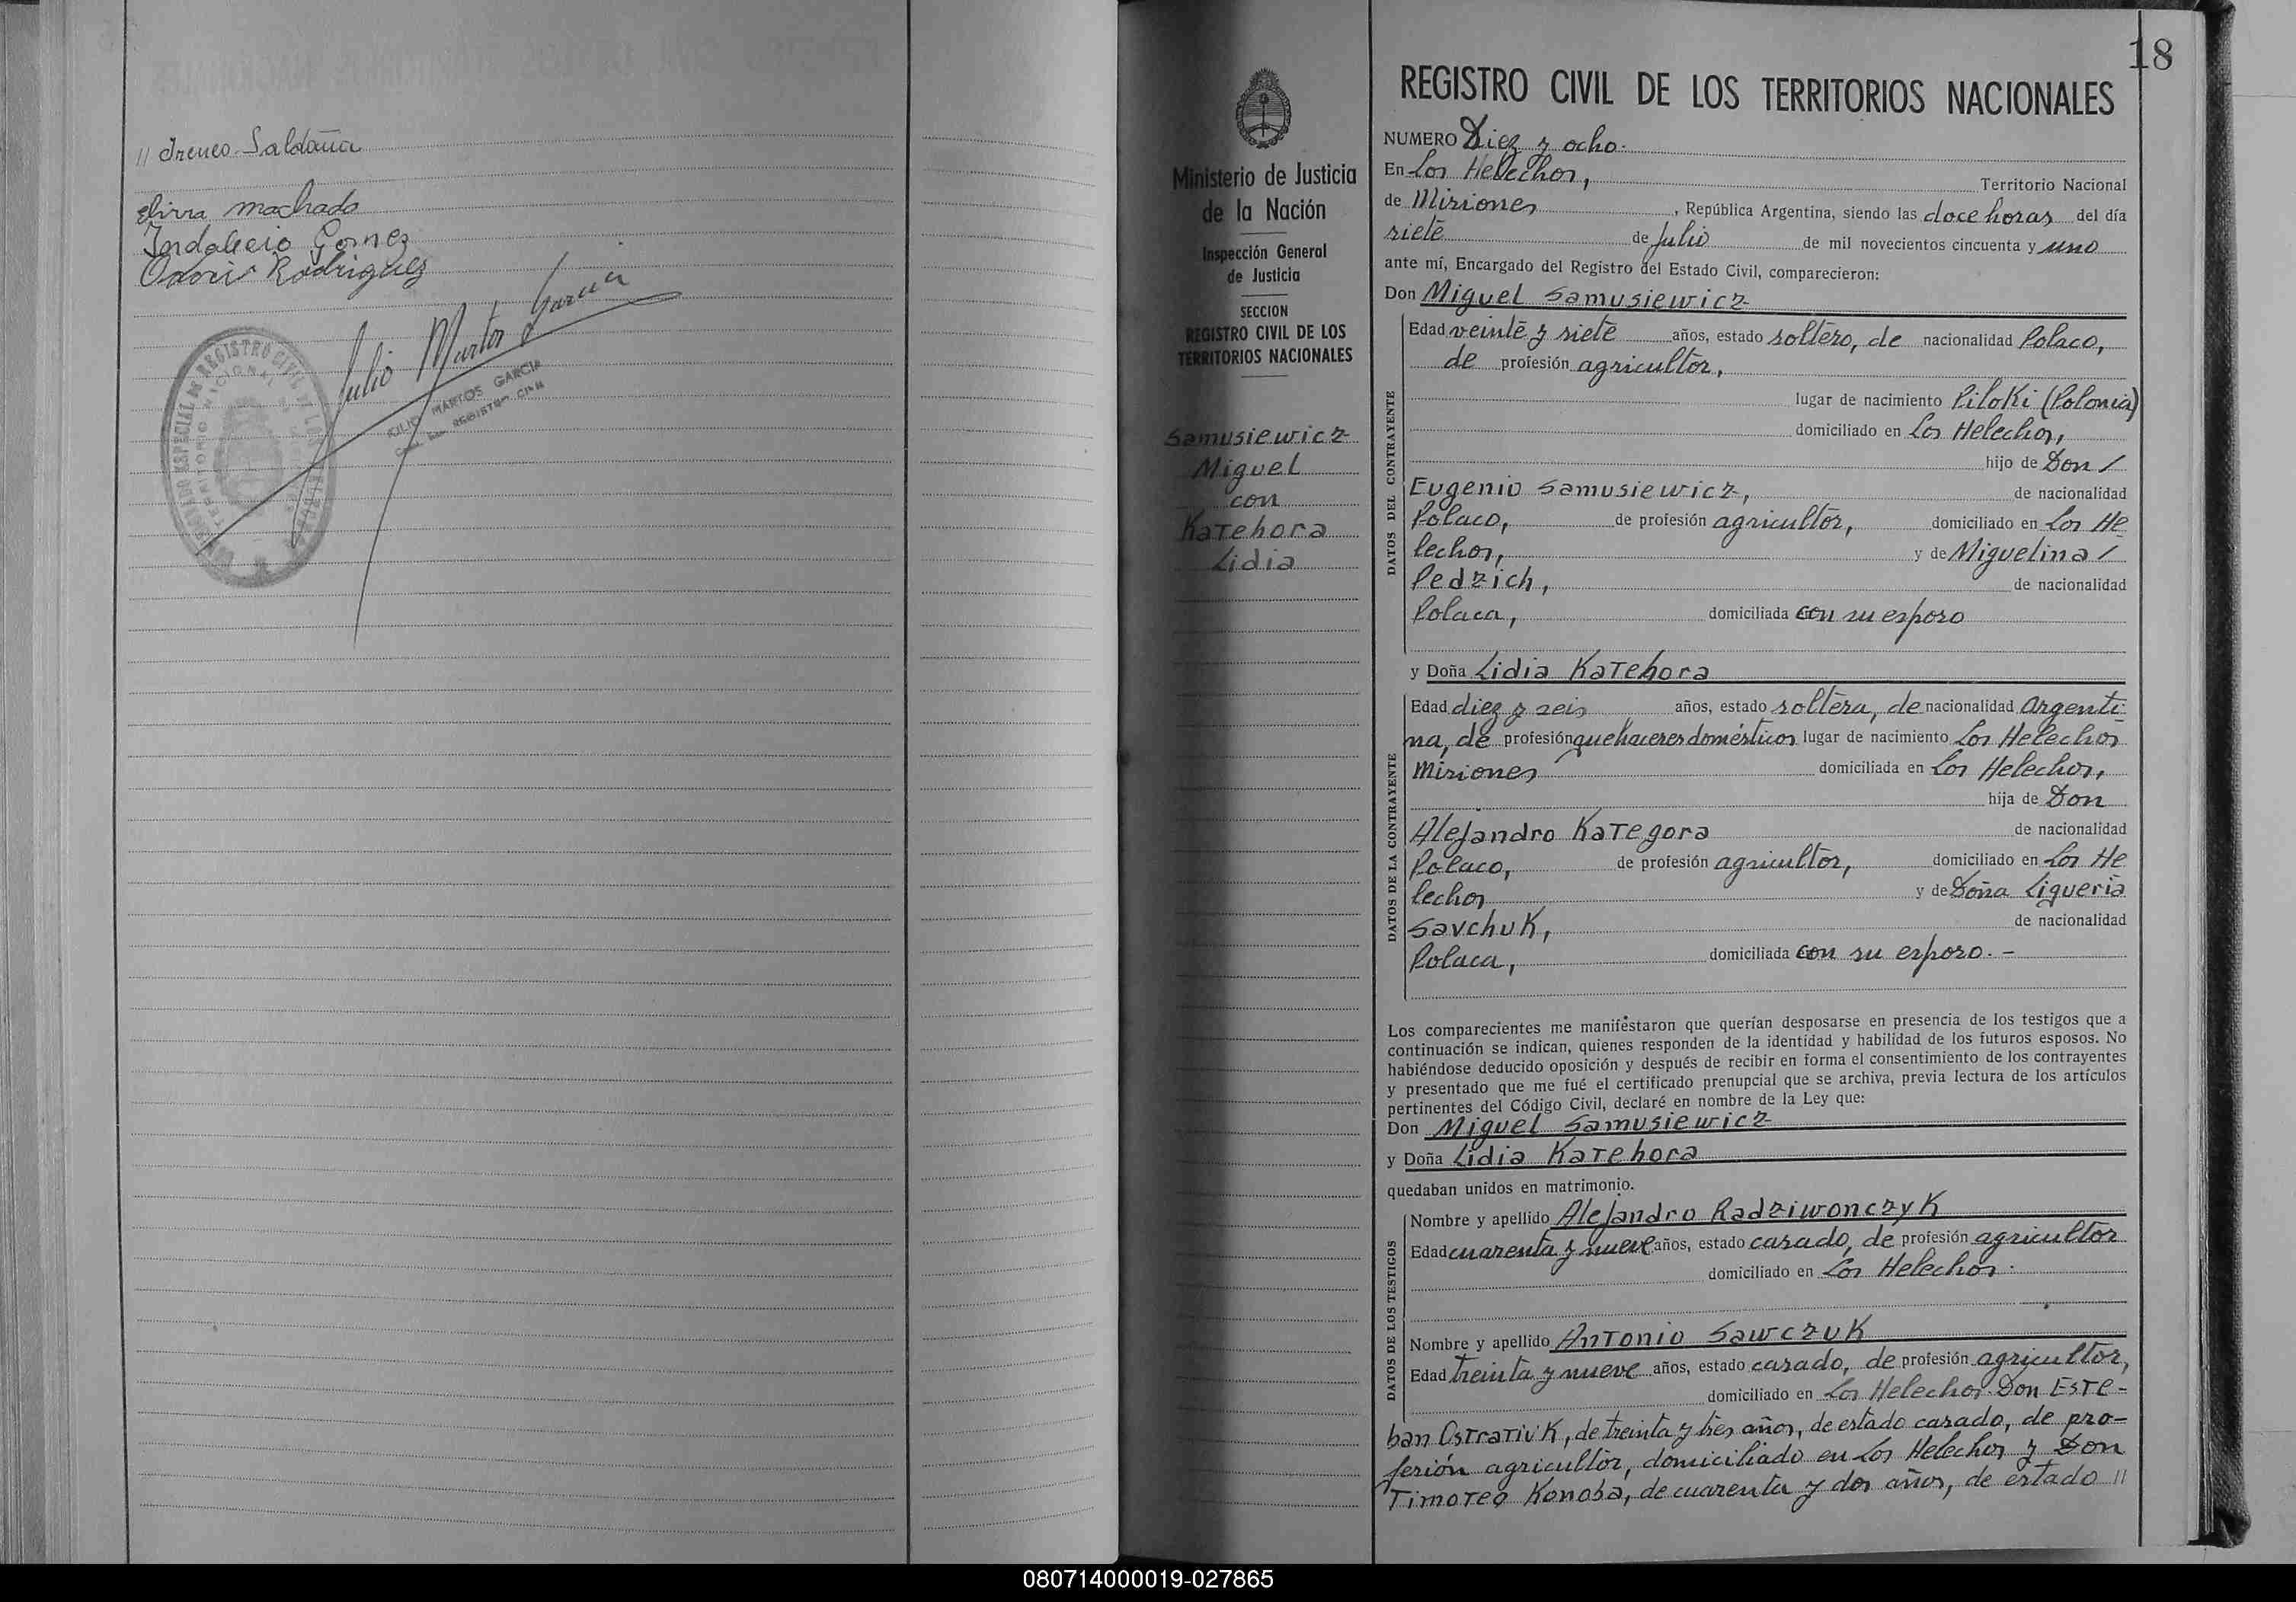 // Ireneo Saldaña
Elvira Machado
Indalecio Gomez
Rodriguez
Julio Martos Garcia
JULIO MARTOS GARCIA
18
REGISTRO CIVIL DE LOS TERRITORIOS NACIONALES
Ministerio de Justicia
de la Nación
Inspección General
de Justicia
SECCION
REGISTRO CIVIL DE LOS
TERRITORIOS NACIONALES
Samusiewicz
Miguel
con
Katehora
Lidia
NUMERO Diez y ocho.
En Los Helechos, Territorio Nacional
de Misiones, República Argentina, siendo las doce horas del día
siete de Julio de mil novecientos cincuenta y uno
ante mí, Encargado del Registro del Estado Civil, comparecieron:
Don Miguel Samusiewicz
DATOS DEL CONTRAYENTE
Edad veinte y siete años, estado soltero, de nacionalidad Polaco,
de profesión agricultor,
lugar de nacimiento Piloki (Polonia)
domiciliado en Los Helechos,
hijo de Don /
Eugenio Samusiewicz, de nacionalidad
Polaco, de profesión agricultor, domiciliado en Los He
lechos, y de Miguelina /
Pedzich, de nacionalidad
Polaca, domiciliada con su esposo
y Doña Lidia Katehora
DATOS DE LA CONTRAYENTE
Edad diez y seis años, estado soltera, de nacionalidad Argenti
na, de profesión quehaceres domésticos lugar de nacimiento Los Helechos
Misiones domiciliada en Los Helechos,
hija de Don
Alejandro Kategora de nacionalidad
Polaco, de profesión agricultor, domiciliado en Los He
lechos y de Doña Ligueria
Savchuk, de nacionalidad
Polaca, domiciliada con su esposo. -
Los comparecientes me manifestaron que querían desposarse en presencia de los testigos que a
continuación se indican, quienes responden de la identidad y habilidad de los futuros esposos. No
habiéndose deducido oposición y después de recibir en forma el consentimiento de los contrayentes
y presentado que me fué el certificado prenupcial que se archiva, previa lectura de los artículos
pertinentes del Código Civil, declaré en nombre de la Ley que:
Don Miguel Samusiewicz
y Doña Lidia Katehora
quedaban unidos en matrimonio.
DATOS DE LOS TESTIGOS
Nombre y apellido Alejandro Radziwonczyk
Edad cuarenta y nueve años, estado casado, de profesión agricultor
domiciliado en Los Helechos.
Nombre y apellido Antonio Sawczuk
Edad treinta y nueve años, estado casado, de profesión agricultor,
domiciliado en Los Helechos. Don Este-
ban Ostratiuk, de treinta y tres años, de estado casado, de pro-
fesión agricultor, domiciliado en Los Helechos y Don
Timoteo Konoba, de cuarenta y dos años, de estado //
080714000019-027865